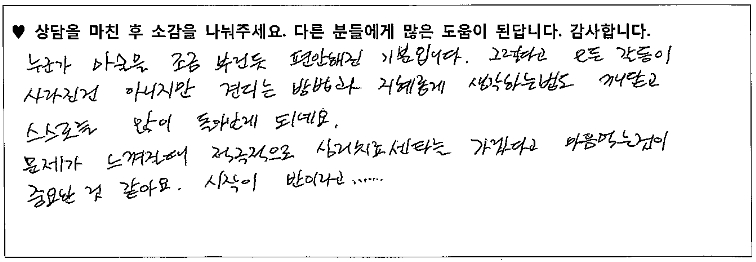 ♥ 상담을 마친 후 소감을 나눠주세요. 다른 분들에게 많은 도움이 된답니다. 감사합니다.
누군가 마음을 조금 부런듯 편안해진 기분입니다. 그렇다고 모든 갈등이
사라진건 아니지만 견디는 방법과 지혜롭게 생각하는법도 깨닫고
스스로를 많이 돌아보게 되네요.
문제가 느껴질때 적극적으로 심리치료센타를 가겠다고 마음먹는것이
중요한 것 같아요. 시작이 반이라고......